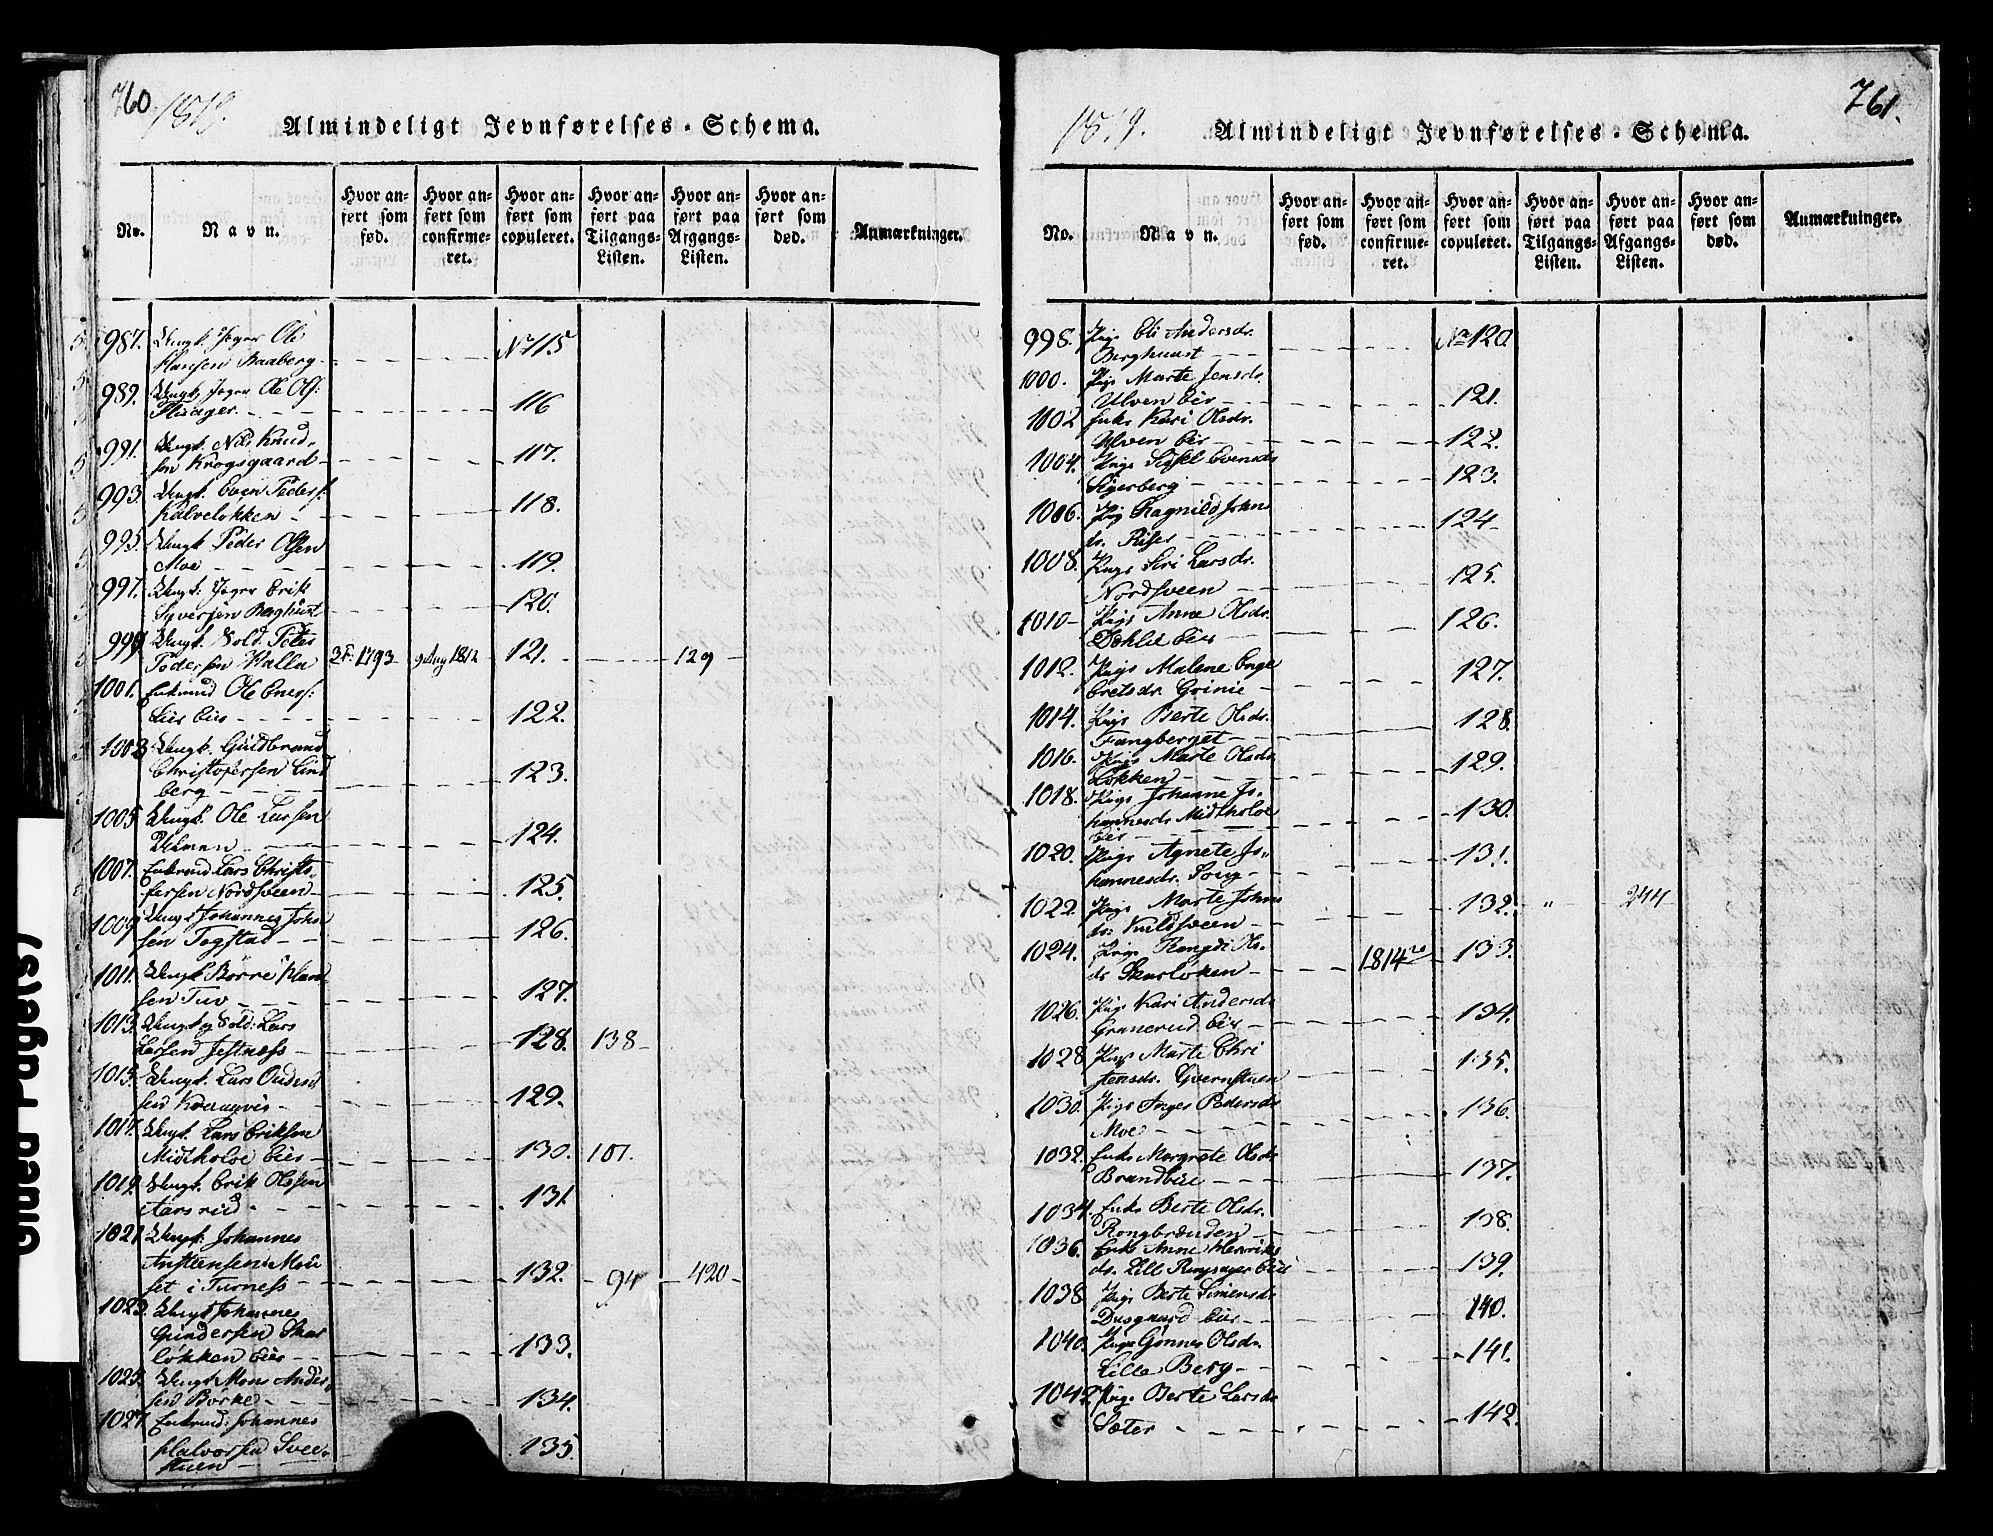 760
1819.
Almindeligt Jevnførelses-Schema.
No.
Navn.
Hvor anført som fød.
Hvor anført som confirmeret.
Hvor anført som copuleret.
Hvor anført paa Tilgangs-Listen.
Hvor anført paa Afgangs-Listen.
Hvor anført som død.
Anmærkninger.
987. Ungk. Jeger Ole
Hansen Baaberg No 115
989. Ungk. Jeger Ole Ols:
116
991. Ungk. Nils Knud-
sen Krogsgaard 117.
993. Ungk. Even Peders:
Kalveløkken 118.
995. Ungk. Peder Olsen
Moe 119.
997. Ungk. Jeger Erik
Syversen Berghust 120.
999. Ungk. Sold. Peter
Pedersen Halla 1793 9 Aug 1812 121. 129
1001. Enkmd. Ole Eners:
Lier Eier 122.
1003 Ungk. Guldbrand
Christofersen Lind
berg 123.
1005. Ungk. Ole Larsen
124.
1007. Enkmd Lars Christo-
fersen Nordsveen 125.
1009 Ungk Johannes John
sen Togstad 126.
1011. Ungk. Børre Han
sen Tuv 127.
1013. Ungk og Sold: Lars
Larsen Jestness 128. 138
1015. Ungk. Lars
129.
1017. Ungk. Lars Eriksen
Midtholoe Eier 130. 101.
1019. Ungk. Erik Olsen
Aarsrud 131
1021. Ungk: Johannes
Anstensen Mou
set i Turness 132. 94 420
1023. Ungk Johannes
Gundersen Skar
løkken Eier 133.
1025. Ungk Mons Ander
sen Børke 134.
1027. Enkmd: Johannes
Halvorsen Svee-
stuen 135.
1819.
761.
Almindeligt Jevnførelses-Schema.
No.
Navn.
Hvor anført som fød.
Hvor anført som confirmeret.
Hvor anført som copuleret.
Hvor anført paa Tilgangs-Listen.
Hvor anført paa Afgangs-Listen.
Hvor anført som død.
Anmærkninger.
998. Pige Eli Andersdr.
Berghuust No 120
1000. Pige Marte Jensdr.
Ulven Eier 121.
1002 Enke Kari Olsdr.
Ulven Eier 122.
1004. Pige Sissel Evensdr
Sigerberg 123.
1006. Pig Ragnild John
dr. Riser 124
1008. Pige Siri Larsdr.
Nordsveen 125.
1010 Pige Anne Olsdr.
Dæhlie Eier 126.
1012. Pige Malene Enge
bretsdr. Grinie 127.
1014. Pige Berte Olsdr.
Fangberget 128.
1016. Pige Marte Olsdr
Løkken 129.
1018. Pige Johanne Jo-
hannesdr Midtholoe
Eier 130.
1020. Pige Agnete Jo-
hannesdr. Song 131.
1022. Pige Marte Johns
dr. 132. " 244
1024. Pige Rangdi Ols
dr Skarløken 1814 133.
1026. Pige Kari Andersdr
Granerud Eier 134.
1028 Pige Marte Chri
stensdr. Qvernstuen 135.
1030. Pige Inger Pedersdr
Moe 136.
1032. Enke Margrete Olsdr
Brandbue 137.
1034. Enke Berte Olsdr.
Rongbrænden 138.
1036. Enke Anne Henriks
dr. Lille Ringsager Eier 139.
1038 Pige Berte Simensdr
Dusgaard Eier 140.
1040. Pige Gønner Olsdr
Lille Berg 141.
1042 Pige Berte Larsdr
Sæter 142.